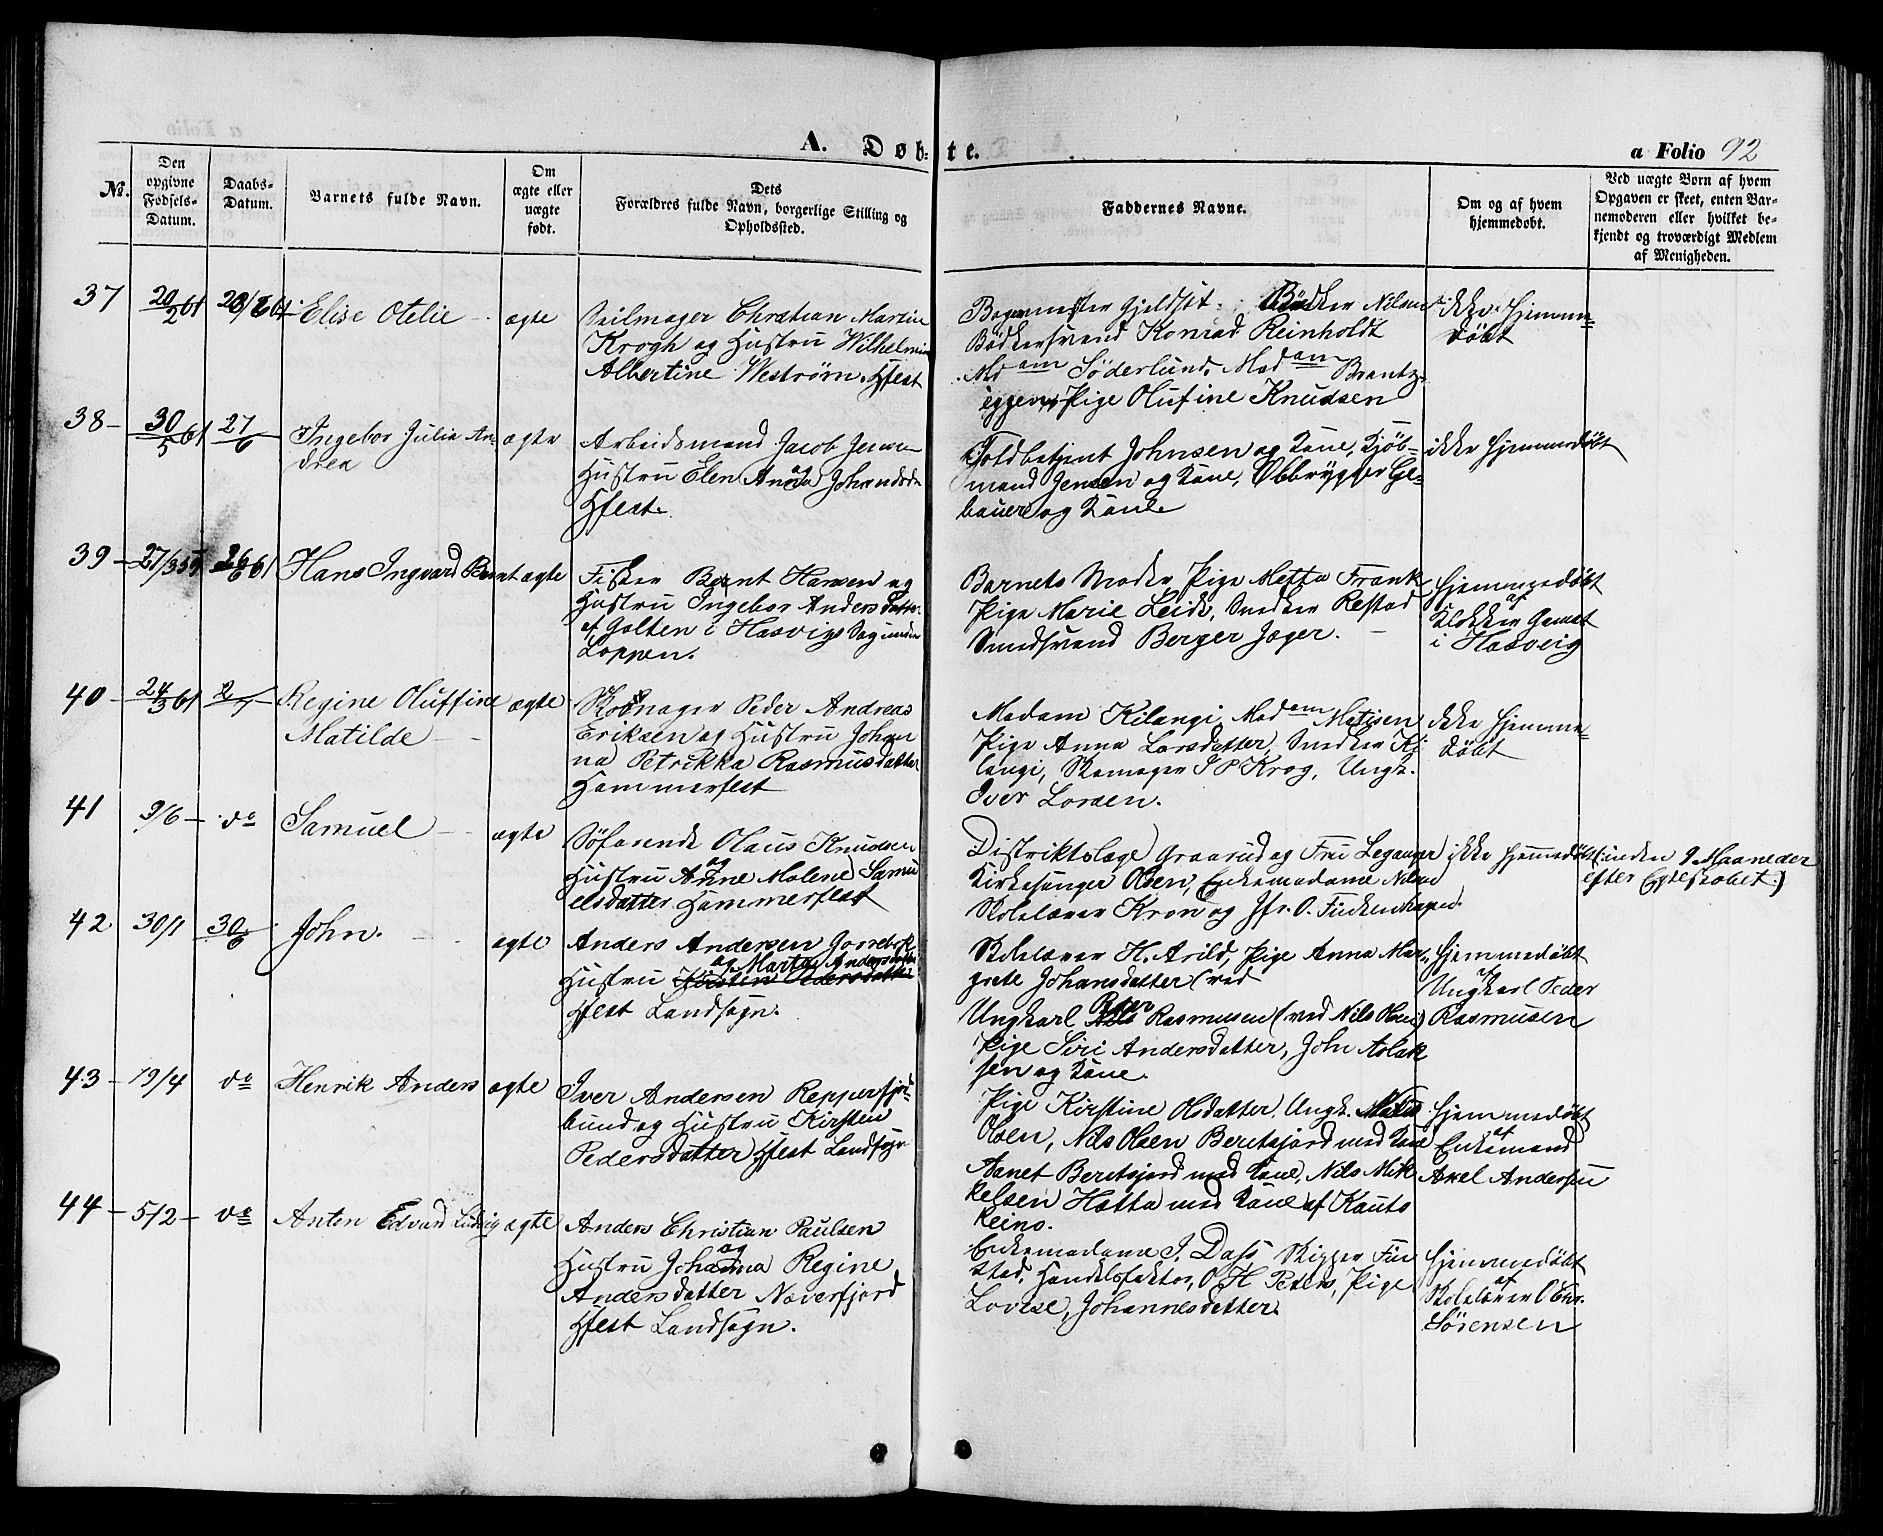 A. Døb-
te.
a Folio 92
No.
Den
opgivne
Fødsels-
Datum.
Daabs-
Datum.
Barnets fulde Navn.
Om
ægte eller
uægte
født.
Dets
Forældres fulde Navn, borgerlige Stilling og
Opholdssted.
Faddernes Navne.
Om og af hvem
hjemmedøbt.
Ved uægte Børn af hvem
Opgaven er skeet, enten Bar-
nemoderen eller hvilket be-
kjendt og troværdigt Medlem
af Menigheden.
37
20/2 61
Elise Otelie
ægte
Seilmager Christian Martin
Krogh og Hustru Wilhelmin
Albertine Westrøm. Hfest
Bagermester Gjeldset. Bödker Nilsen
Bödkersvend Konrad Reinholdt
Mdam Söderlund, Madam Brantz-
egger, Pige Olufine Knudsen
ikke hjemme=
döbt
38 -
30/5 61
27/6
Ingebor Julia An-
drea
ægte
Arbeidsmand Jacob Jensen
Hustru Elen og Anna Johansdr
Hfest.
Toldbetjent Johnsen og Kone, Kjöb-
mand Jensen og Kone, Ölbrygger Ge-
bauer og Kone
ikke hjemmedöbt
39 -
26/6 61
Hans Ingvard Bernt
ægte
Fisker Bernt Hansen og
Hustru Ingebor Andersdatter
af Galten i Hasvigs Sogn
Loppen.
Barnets Moder, Pige Metta Frank
Pige Marie Leide, Snedker Restad
Smedsvend Berger Jæger.
hjemmedöbt
af
Klokker Gamst
i Hasveig
40 -
24/3 61
2/7
Regine Oluffine
Matilde
ægte
Skomager Peder Andreas
Eriksen og Hustru Johan
na Petrikka Rasmusdatter
Hammerfest
Madam Kilangi, Madam Matisen
Pige Anna Larsdatter, Snedker Ki-
langi, Skomager I P Krog, Ungk.
Iver Larsen.
ikke hjemme-
döbt
41
9/6 -
do
Samuel
ægte
Söfarende Olaus Knudsen
Hustru og Anne Malene Samu
elsdatter Hammerfest
Distriktslæge Graarud og Fru Leganger
Kirkesanger Olsen, Enkemadame Nilsen
Skolelærer Kron og Jfr. O. Finckenhagen.
ikke hjemmedöbt
(inden 9 Maaneder
efter Egteskabet.)
42
30/1
30/6
John.
ægte
Anders Andersen Jorrebek
og Marta Andersdatter
Hustru Kirsten Pedersdatter
Hfest Landsogn.
Skolelærer H. Arild, Pige Anna Mar-
grete Johansdatter (ved
Peder
Ungkarl Nils Rasmusen (ved Nils Olsen)
Pige Siri Andersdatter, John Aslak
sen og Kone.
hjemmedöbt
af
Ungkarl Peder
Rasmusen
43 -
19/4
do
Henrik Anders
ægte
Iver Andersen Repperfjord-
bund og Hustru Kirsten
Pedersdatter Hfest Landsogn
Pige Kirstine Olsdatter, Ungk. Matis
Olsen, Nils Olsen Beretsjord med Kone
Aanet Beretsjord med Kone, Nils Mik
kelsen Hætta med Kone af Kauto
keino.
hjemmedöbt
af
Enkemand
Axel Andersen
44 -
5/2 -
do
Anton Edvard Ludvig
ægte
Anders Christian Paulsen
Hustru og Johanna Regine
Andersdatter Naverfjord
Hfest Landsogn.
Enkemadame I. Dass, Skipper Fin
stad, Handelsfaktor O H Peters, Pige
Lovise, Johannesdatter.
hjemmedöbt
af
Skolelærer O Chr.
Sörensen